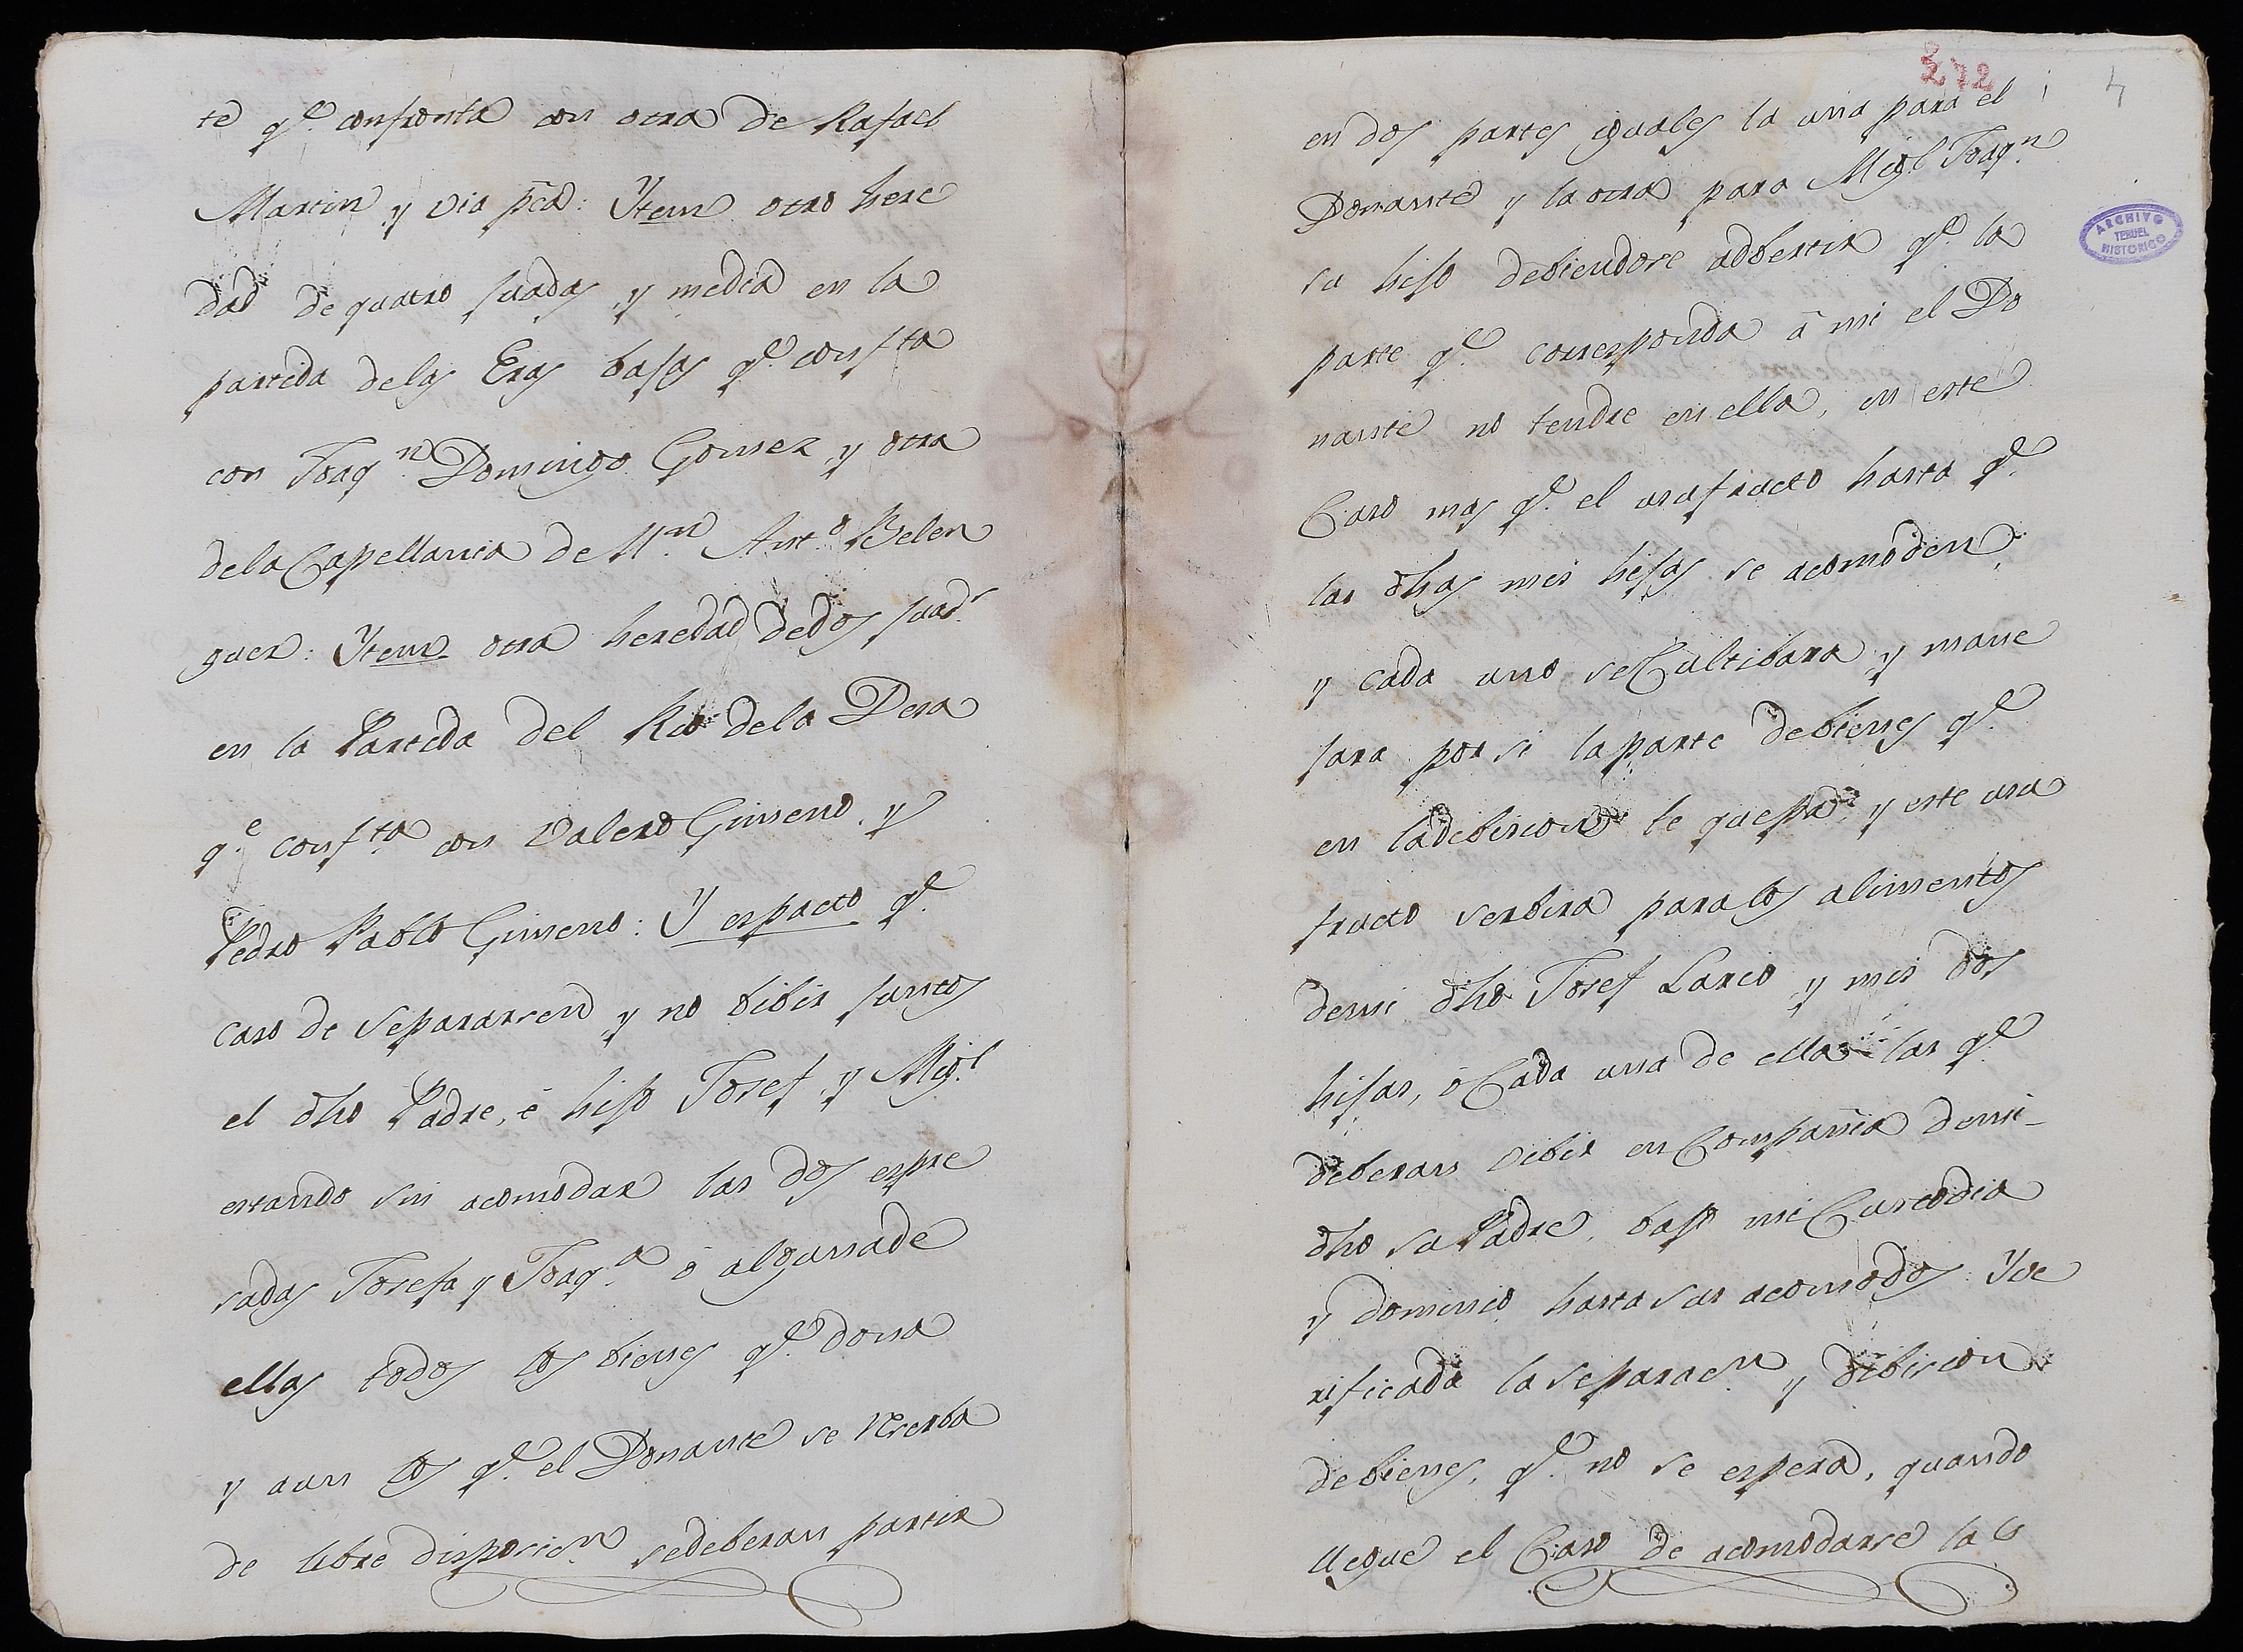 te q.e confronta con otra de Rafael
Martin y via pca: Ytem otro here
dad de quatro juadas y media en la
partida delas Eras bajas q.e confta
con Joaq.n Domingo Gomez y otra
dela Capellania de M.n Ant.o Belen
guer: Ytem otra heredad dedos juad.s
en la Partida del Rio dela Desa
q.e conf.ta con Valero Gimeno y
Pedro Pablo Gimeno: Y espacto q.e
caso de separarsen y no bibir juntos
el dho Padre, é hijo Josef y Mig.l
estando sin acomodar las dos espre
sadas Josefa y Joaq.a o algunade
ellas todos los bienes q.e dona
y aun los q.e el Donante se reserba
de libre disposicn sedeberan partir
272
4
ARCHIVO
TERUEL
HISTORICO
en dos partes iguales la una para el
Donante y la otra para Mig.l Joaq.n
su hijo debiendose adbertir q.e la
parte q.e corresponda â mi el Do
nante no tendre en ella, en este
Caso mas q.e el usufructo hasta q.e
las dhas mis hijas se acomoden;
y cada uno seCultibara y mane
jara por si laparte debienes q.e
en ladebision le quepa y este usu
fructo serbira paralos alimentos
demi dho Josef Lario y mis dos
hijas, ó Cada una de ellas las q.e
deberan vibir en Compañia demi
dho su Padre, bajo mi Custodia
y dominio hasta sus acomodos: Yve
rificada la separacn y debision
debienes, q.e no se espera, quando
llegue el Caso de acomodarse las